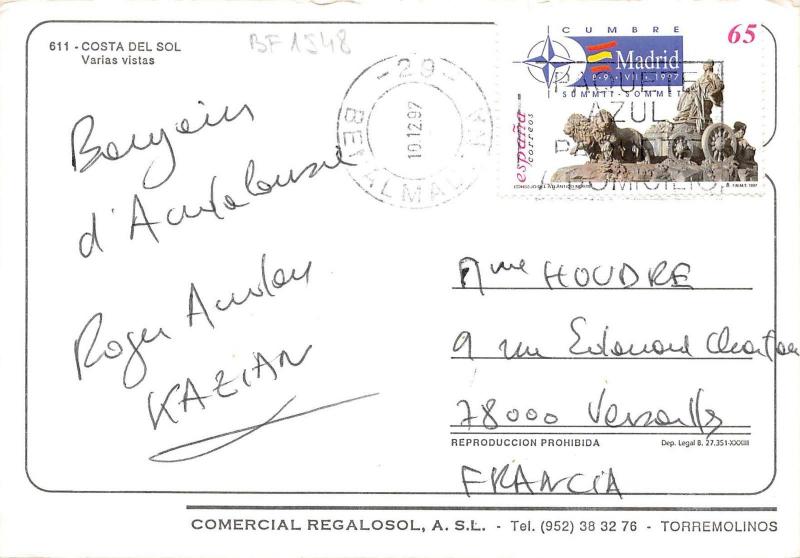 611 - COSTA DEL SOL
Varias vistas
BF 1548
- 29 -
BENALMADENA
10.12.97
CUMBRE
65
Madrid
8-9 - VII - 1997
SUMMIT - SOMMET
PAQUETE
AZUL
DOMICILIO
españa
correos
CONSEJO DEL ATLÁNTICO NORTE
F.N.M.T. 1997
Bonjour
d'Andalousie
Roger
KAZIAN
Mme HOUDRE
9 rue Edouard Charton
78000 Versailles
REPRODUCCION PROHIBIDA
Dep. Legal B. 27.351-XXXIII
FRANCIA
COMERCIAL REGALOSOL, A. S.L. - Tel. (952) 38 32 76 - TORREMOLINOS